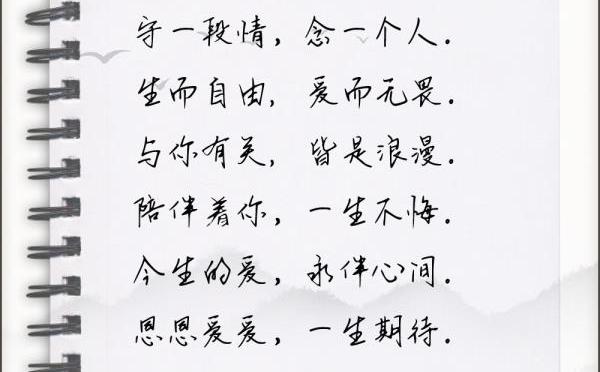 守一段情，念一个人.
生而自由，爱而无畏.
与你有关，皆是浪漫.
陪伴着你，一生不悔.
今生的爱，永伴心间.
恩恩爱爱，一生期待.